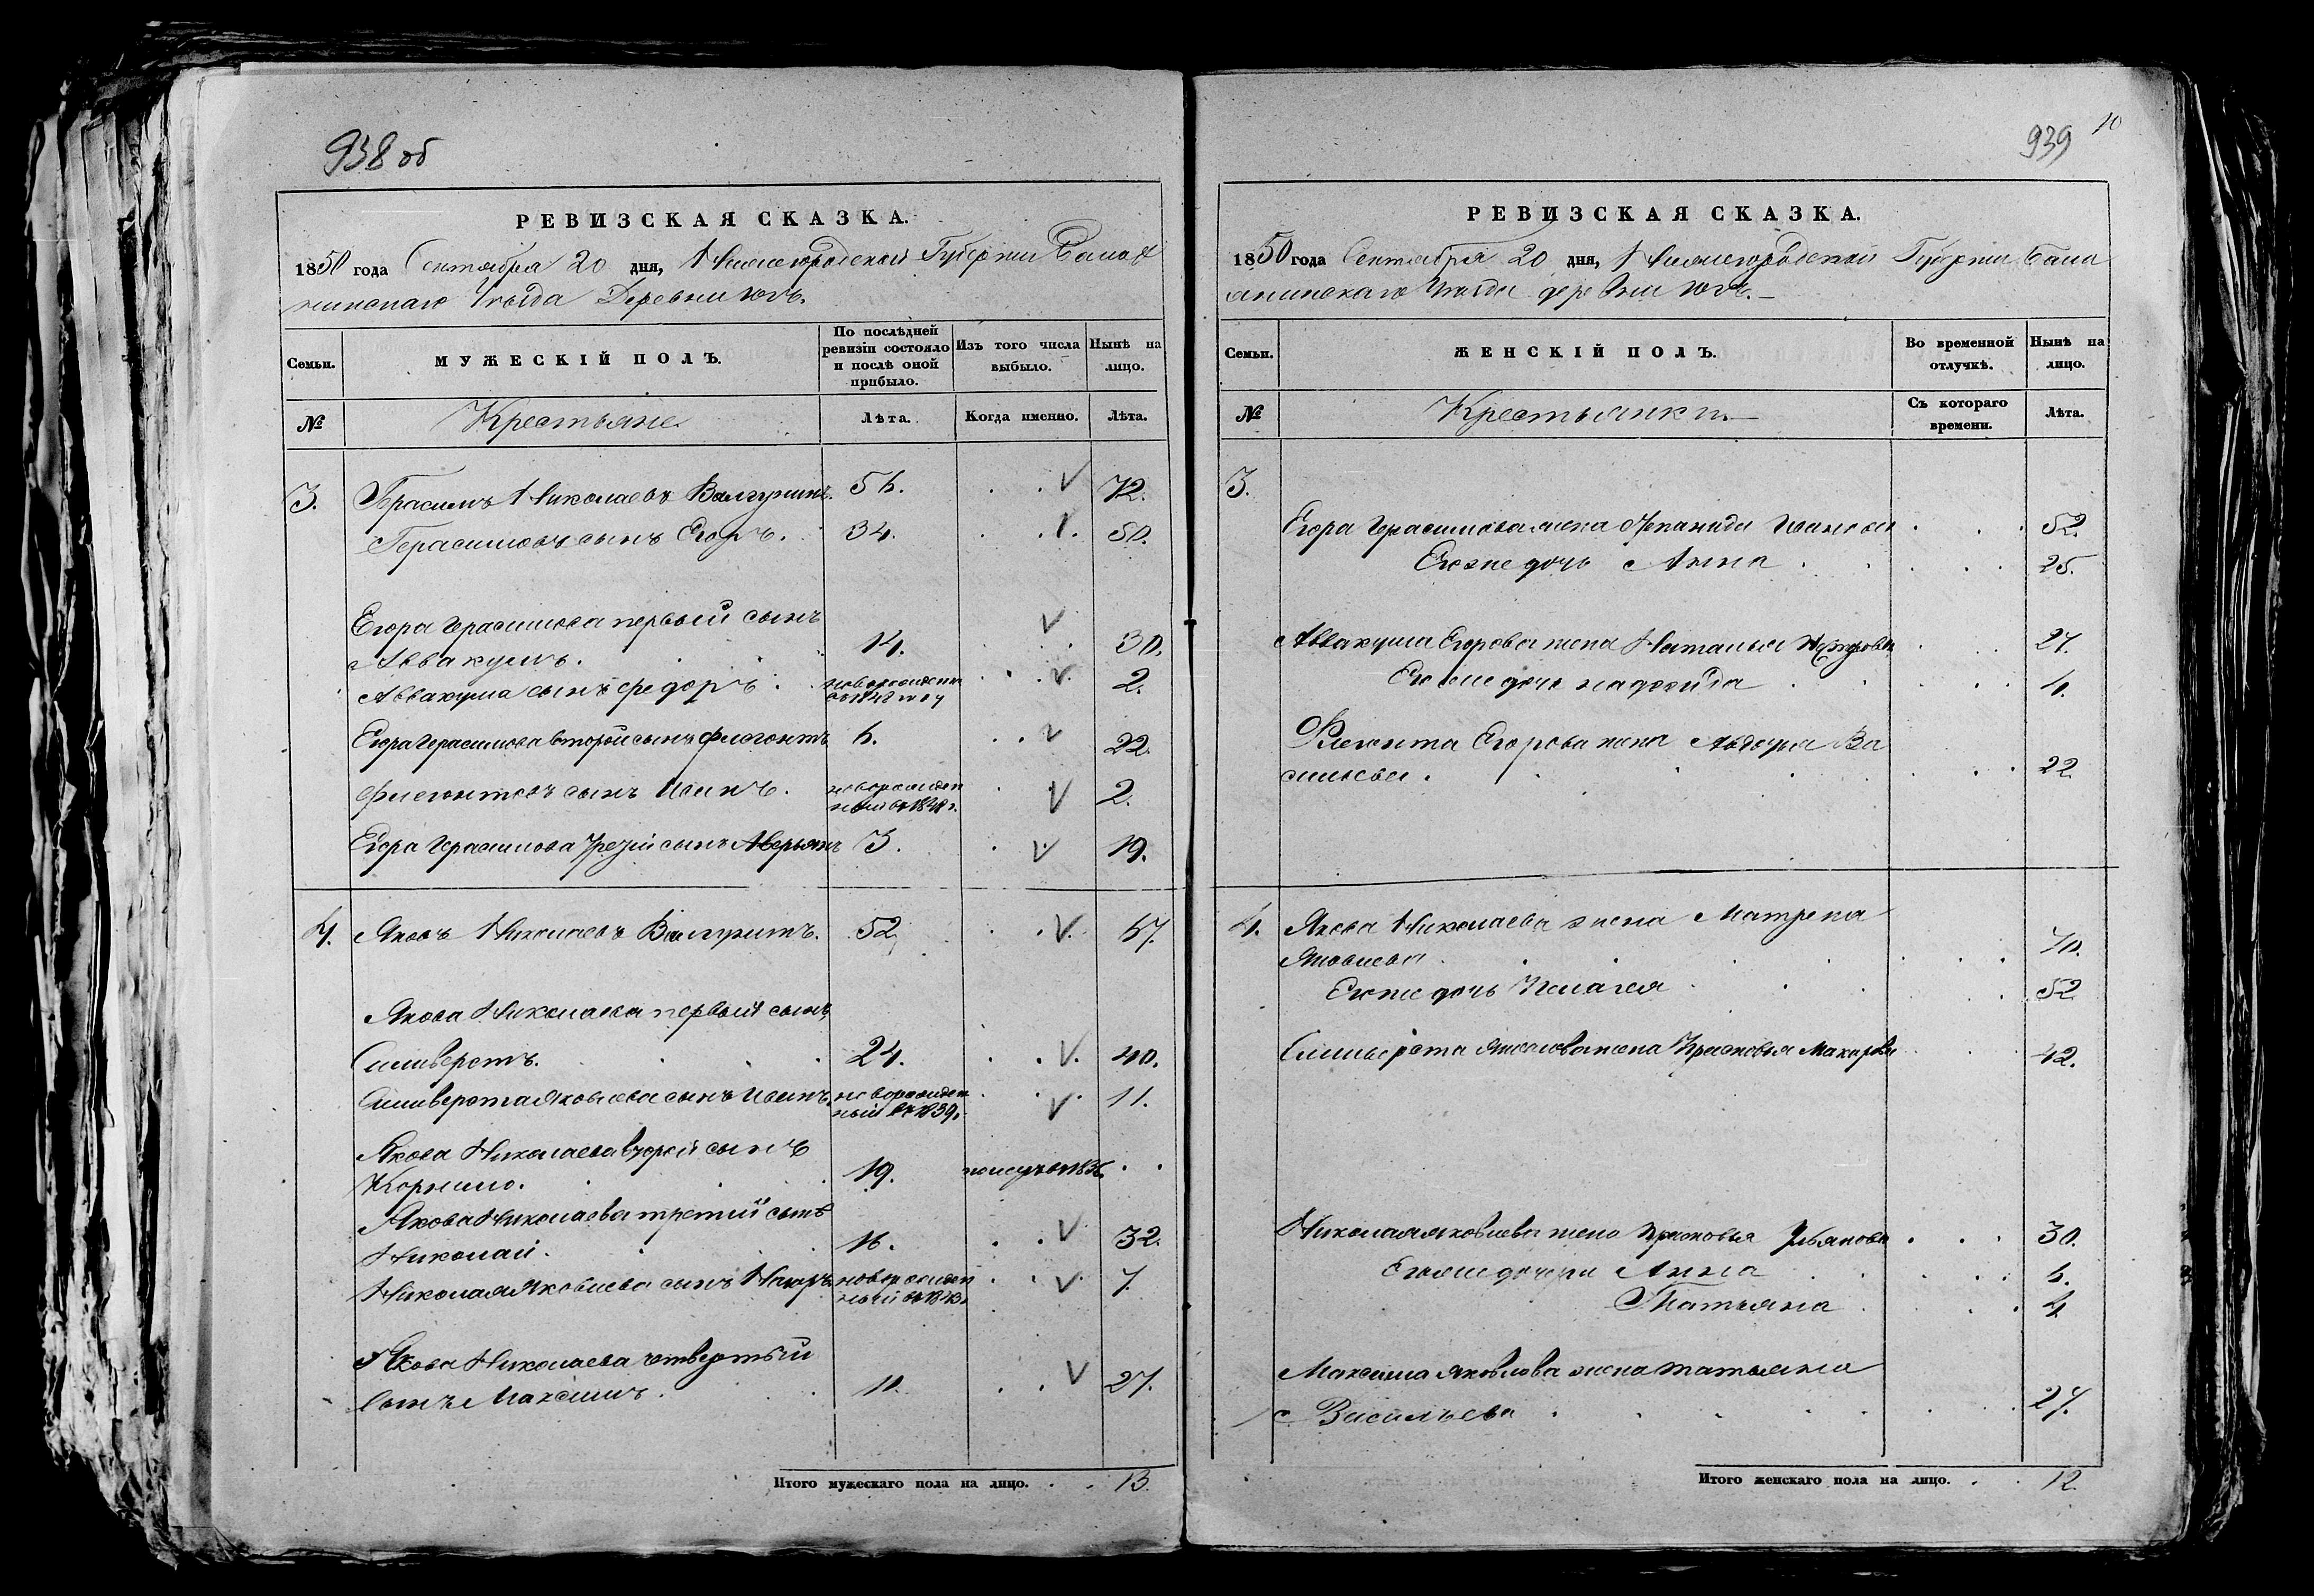 938 об
РЕВИЗСКАЯ СКАЗКА.
1850 года Сентября 20 дня, Нижегородской Губернии Балах
нинскаго Уѣзда Деревни Югъ.
Семьи.
МУЖЕСКІЙ ПОЛЪ.
По послѣдней ревизіи состояло и послѣ оной прибыло.
Изъ того числа выбыло.
Нынѣ на лицо.
№ Крестьяне. Лѣта. Когда именно. Лѣта.
3. Герасимъ Николаевъ 56. 72.
Герасимовъ сынъ Егоръ. 34. 50.
Егора Герасимова первый сынъ
Аввакумъ. 14. 30.
Аввакума сынъ Федоръ. новорожденн 2.
Егора Герасимова второй сынъ Флегонтъ 6. 22.
Флегонтовъ сынъ Иванъ. новорожден 2.
ный въ 1848 г.
Егора Герасимова третій сынъ Аверьянъ 3. 19.
4. Яковъ Николаевъ 52. 67.
Якова Николаева первый сынъ
Силиверстъ. 24. 40.
Силиверста Яковлева сынъ Иванъ. новорожден 11.
ный въ 1839.
Якова Николаева второй сынъ
Корнило. 19.
Якова Николаева третій сынъ
Николай. 16. 32.
Николая Яковлева сынъ новорожден 7.
ный въ 1843
Якова Николаева четвертый
сынъ Максимъ. 11. 27.
Итого мужескаго пола на лицо. 13.
939 10
РЕВИЗСКАЯ СКАЗКА.
1850 года Сентября 20 дня, Нижегородской Губерніи Бала
хнинскаго Уѣзда деревни Югъ.
Семьи.
ЖЕНСКІЙ ПОЛЪ.
Во временной отлучкѣ.
Нынѣ на лицо.
№ Крестьянки. Съ котораго времени. Лѣта.
3.
Егора Герасимова жена Степанида Иванова 52.
Его же дочь Анна 25.
Аввакума Егорова жена Наталья 27.
Его же дочь Надежда 4.
Флегонта Егорова жена Авдотья Ва
сильева. 22.
4. Якова Николаева жена Матрена
Яковлева 70.
Его же дочь Пелагея 52.
Силиверста Яковлева жена Прасковья Макарова 42.
Николая Яковлева жена Прасковья Ульянова 30.
Его же дочери Анна 6.
Татьяна 4
Максима Яковлева жена Татьяна
Васильева 27.
Итого женскаго пола на лицо. 12.